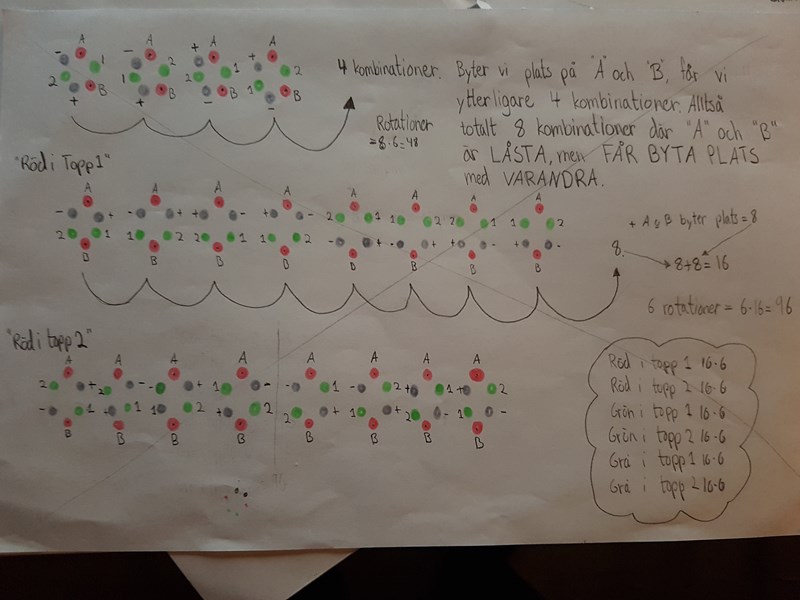 A A A A
- 1 - 2 + 1 + 2
2 B 1 B 2 B 1 B
+ + - -
4 kombinationer.
Byter vi plats på "A" och "B", får vi
ytterligare 4 kombinationer. Alltså
totalt 8 kombinationer där "A" och "B"
är LÅSTA, men FÅR BYTA PLATS
med VARANDRA.
Rotationer
= 8·6 = 48
"Röd i Topp 1"
A A A A A A A A
- + - + + - + - 2 1 1 2 2 1 1 2
2 1 1 2 2 1 1 2 - + - + + - + -
B B B B B B B B
8.
+ A o B byter plats = 8
8+8 = 16
6 rotationer = 6·16 = 96
"Röd i topp 2"
A A A A A A A A
2 + 2 - - + 1 - - 1 - 2 + 1 + 2
- 1 + 1 1 2 + 2 2 + 1 + 2 - 1 -
B B B B B B B B
Röd i topp 1 16·6
Röd i topp 2 16·6
Grön i topp 1 16·6
Grön i topp 2 16·6
Grå i topp 1 16·6
Grå i topp 2 16·6